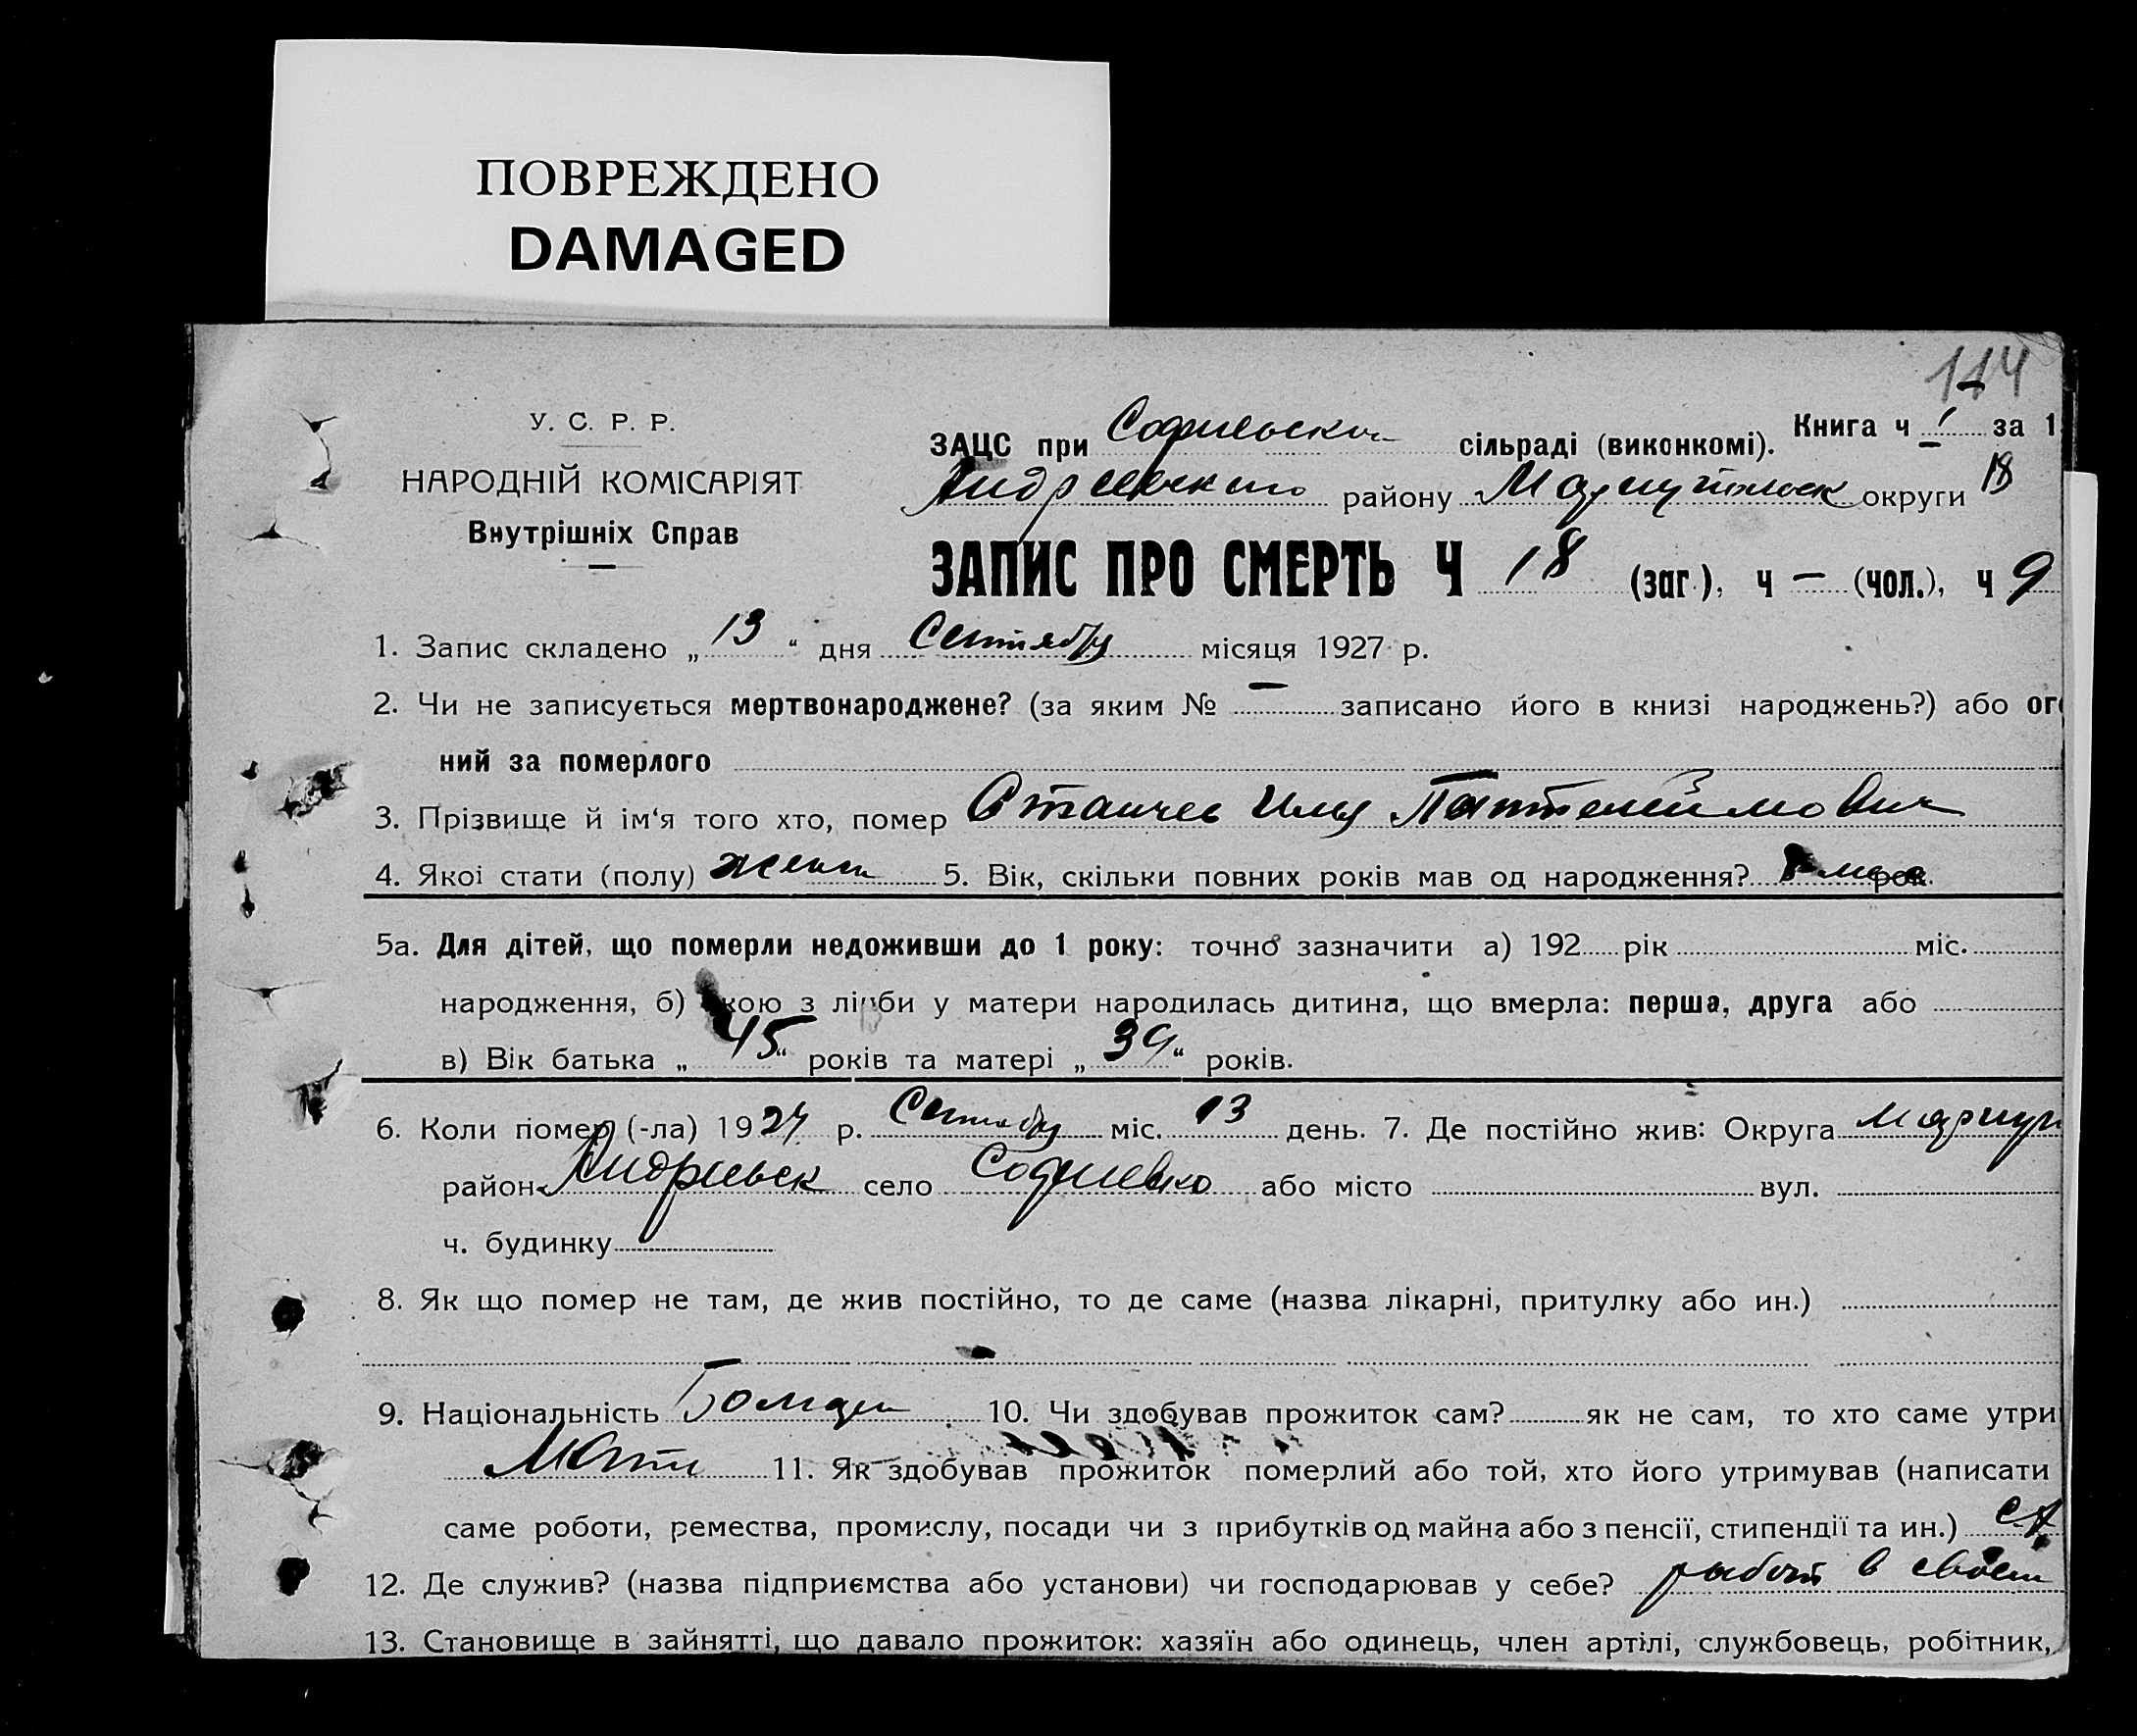 ПОВРЕЖДЕНО
DAMAGED
114
У. С. Р. Р.
НАРОДНІЙ КОМІСАРІЯТ
Внутрішніх Справ
ЗАЦС при сільраді (виконкомі). Книга ч за 1
району округи 18
ЗАПИС ПРО СМЕРТЬ Ч 18 (заг.), ч — (чол.), ч 9
1. Запис складено „ 13 “ дня Сентября місяця 1927 р.
2. Чи не записується мертвонароджене? (за яким № — записано його в книзі народжень?) або
ний за померлого
3. Прізвище й ім‘я того хто, помер
4. Якоі стати (полу) женск 5. Вік, скільки повних років мав од народження? рок.
5а. Для дітей, що померли недоживши до 1 року: точно зазначити а) 192 рік міс.
народження, б) якою з лічби у матери народилась дитина, що вмерла: перша, друга або
в) Вік батька „ 45 “ років та матері „ 39 “ років.
6. Коли помер (-ла) 1927 р. Сентября міс. 13 день. 7. Де постійно жив: Округа Мариуп
район село або місто вул.
ч. будинку
8. Як що помер не там, де жив постійно, то де саме (назва лікарні, притулку або ин.)
9. Національність 10. Чи здобував прожиток сам? як не сам, то хто саме утри
Мати 11. Як здобував прожиток померлий або той, хто його утримував (написати
саме роботи, ремества, промислу, посади чи з прибутків од майна або з пенсії, стипендії та ин.)
12. Де служив? (назва підприємства або установи) чи господарював у себе? работ в своем
13. Становище в зайнятті, що давало прожиток: хазяїн або одинець, член артілі, службовець, робітник,